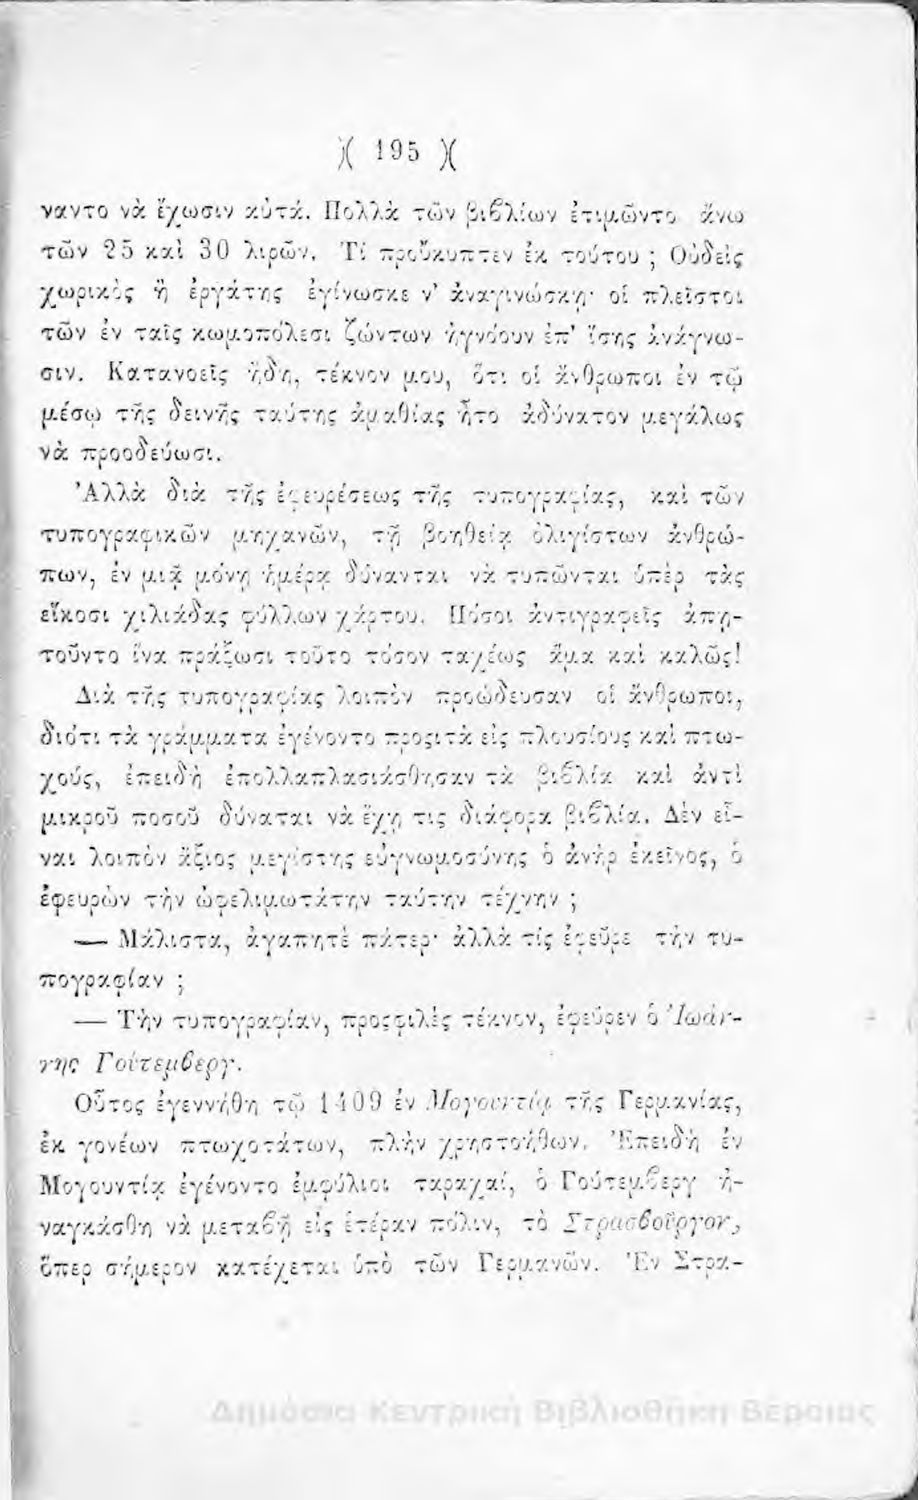 )( 195 )(
ναντο νὰ ἔχωσιν αὐτά. Πολλὰ τῶν βιβλίων ἐτιμῶντο ἄνω
τῶν 25 καὶ 30 λιρῶν. Τί προὔκυπτεν ἐκ τούτου ; Οὐδεὶς
χωρικὸς ἢ ἐργάτης ἐγίνωσκε ν’ ἀναγινώσκῃ· οἱ πλεῖστοι
τῶν ἐν ταῖς κωμοπόλεσι ζώντων ἠγνόουν ἐπ’ ἴσης ἀνάγνω-
σιν. Κατανοεῖς ἤδη, τέκνον μου, ὅτι οἱ ἄνθρωποι ἐν τῷ
μέσῳ τῆς δεινῆς ταύτης ἀμαθίας ἦτο ἀδύνατον μεγάλως
νὰ προοδεύωσι.
Ἀλλὰ διὰ τῆς ἐφευρέσεως τῆς τυπογραφίας, καὶ τῶν
τυπογραφικῶν μηχανῶν, τῇ βοηθείᾳ ὀλιγίστων ἀνθρώ-
πων, ἐν μιᾷ μόνῃ ἡμέρᾳ δύνανται νὰ τυπῶνται ὑπὲρ τὰς
εἴκοσι χιλιάδας φύλλων χάρτου. Πόσοι ἀντιγραφεῖς ἀπῃ-
τοῦντο ἵνα πράξωσι τοῦτο τόσον ταχέως ἅμα καὶ καλῶς!
Διὰ τῆς τυπογραφίας λοιπὸν προώδευσαν οἱ ἄνθρωποι,
διότι τὰ γράμματα ἐγένοντο προςιτὰ εἰς πλουσίους καὶ πτω-
χούς, ἐπειδὴ ἐπολλαπλασιάσθησαν τὰ βιβλία καὶ ἀντὶ
μικροῦ ποσοῦ δύναται νὰ ἔχῃ τις διάφορα βιβλία. Δὲν εἶ-
ναι λοιπὸν ἄξιος μεγίστης εὐγνωμοσύνης ὁ ἀνὴρ ἐκεῖνος, ὁ
ἐφευρὼν τὴν ὠφελιμωτάτην ταύτην τέχνην ;
— Μάλιστα, ἀγαπητὲ πάτερ· ἀλλὰ τίς ἐφεῦρε τὴν τυ-
πογραφίαν ;
— Τὴν τυπογραφίαν, προςφιλὲς τέκνον, ἐφεῦρεν ὁ Ἰωάν-
νης Γούτεμβεργ.
Οὗτος ἐγεννήθη τῷ 1409 ἐν Μογουντίᾳ τῆς Γερμανίας,
ἐκ γονέων πτωχοτάτων, πλὴν χρηστοήθων. Ἐπειδὴ ἐν
Μογουντίᾳ ἐγένοντο ἐμφύλιοι ταραχαί, ὁ Γούτεμβεργ ἠ-
ναγκάσθη νὰ μεταβῇ εἰς ἑτέραν πόλιν, τὸ Στρασβοῦργον,
ὅπερ σήμερον κατέχεται ὑπὸ τῶν Γερμανῶν. Ἐν Στρα-
Δημόσια Κεντρική Βιβλιοθήκη Βέροιας